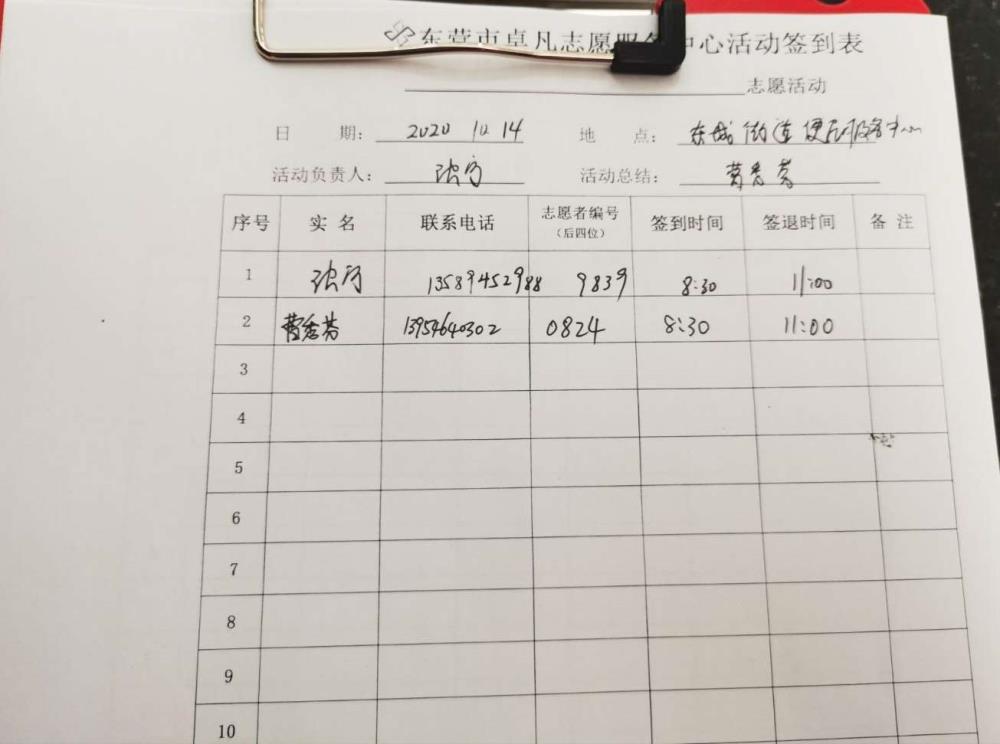 东营市卓凡志愿服务中心活动签到表
志愿活动
日 期: 2020 10 14 地 点: 东城街道便民服务中心
活动负责人: 活动总结:
序号 实 名 联系电话 志愿者编号 (后四位) 签到时间 签退时间 备 注
1 13589452988 9839 8:30 11:00
2 13954640302 0824 8:30 11:00
3
4
5
6
7
8
9
10